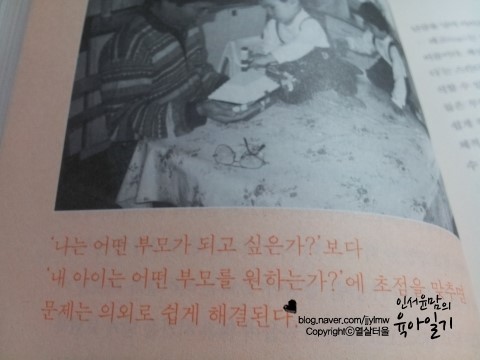 '나는 어떤 부모가 되고 싶은가?'보다
'내 아이는 어떤 부모를 원하는가?'에 초점을 맞추면
문제는 의외로 쉽게 해결된다.
인서윤맘의
육아일기
blog.naver.com/jjylmw
Copyrightⓒ열살터울